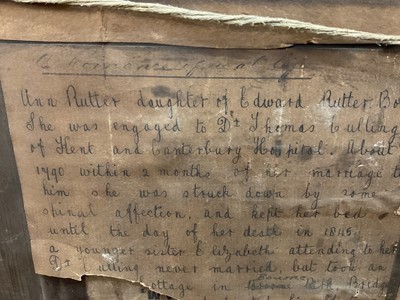 Ann Rutter daughter of Edward Rutter Bo
She was engaged to Dr Thomas Culling
of Kent and Canterbury Hospital. About
1790 within 2 months of her marriage t
him she was struck down by some
spinal affection, and kept her bed
until the day of her death in 1845
a younger sister Elizabeth attending to her
Dr Culling never married, but took an
ottage in